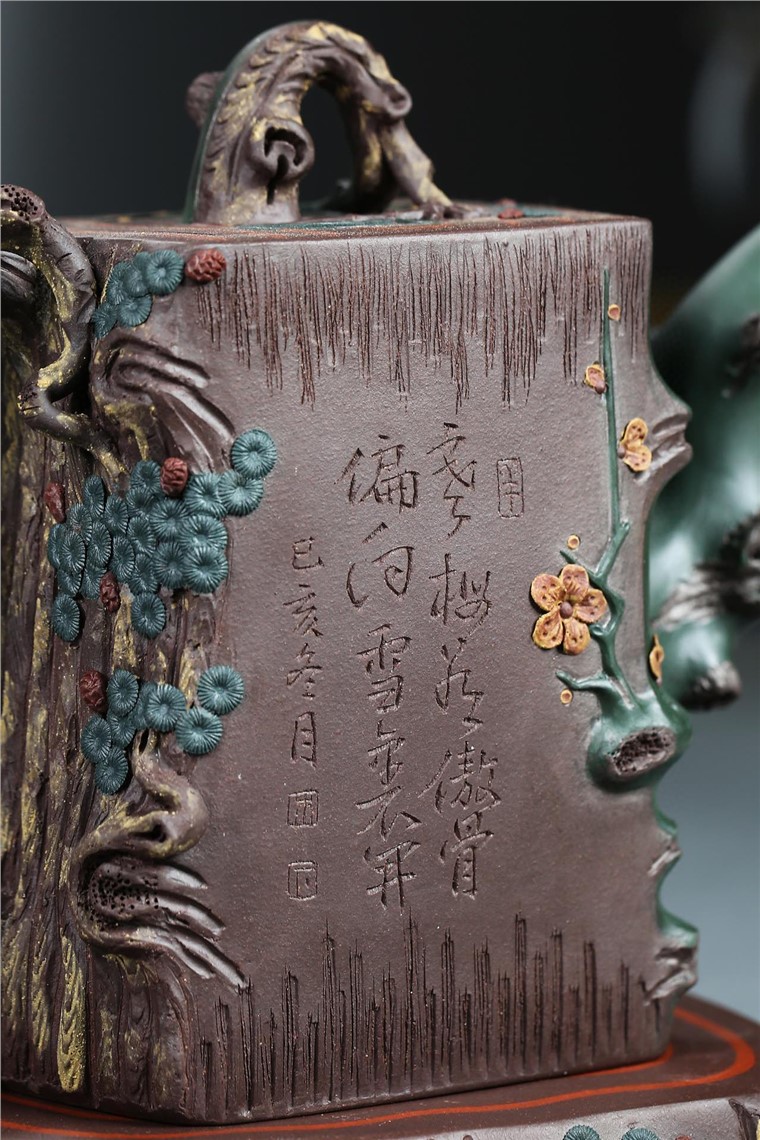 寒梅傲骨
偏向雪裏开
己亥冬月